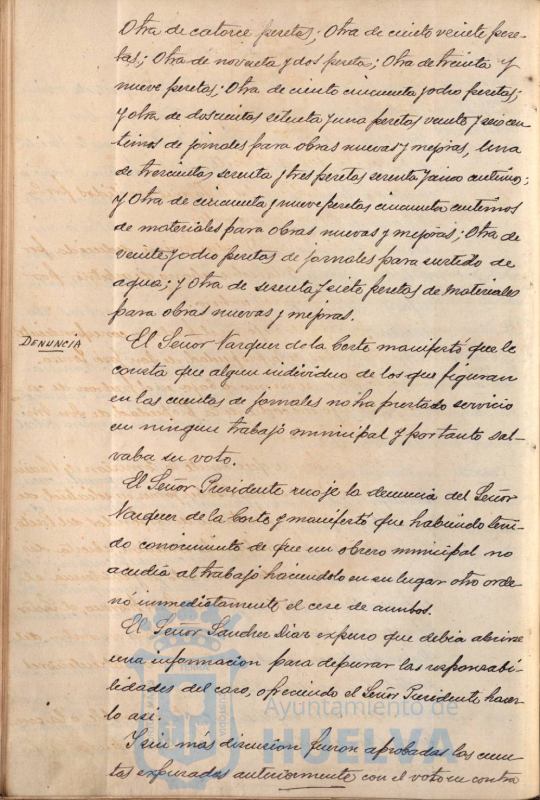 Otra de catorce pesetas; Otra de ciento veinte pese-
tas; Otra de noventa y dos peseta; Otra de treinta y
nueve pesetas; Otra de ciento cincuenta y ocho pesetas;
y otra de doscientas setenta y una pesetas veinte y seis cen
timos de jornales para obras nuevas y mejoras, Una
de trescientas sesenta y tres pesetas sesenta y cinco centimos;
y Otra de cincuenta y nueve pesetas cincuenta centimos
de materiales para obras nuevas y mejoras; Otra de
veinte y ocho pesetas de jornales para surtido de
agua; y Otra de sesenta y siete pesetas de materiales
para obras nuevas y mejoras.
DENUNCIA
El Señor Vazquez de la Corte manifestó que le
consta que algun individuo de los que figuran
en las cuentas de jornales no ha prestado servicio
en ningun trabajo municipal y por tanto sal-
vaba su voto.
El Señor Presidente recoje la denuncia del Señor
Vazquez de la Corte y manifestó que habiendo teni-
do conocimiento de que un obrero municipal no
acudia al trabajo haciendolo en su lugar otro orde
nó inmediatamente el cese de ambos.
El Señor Sanchez Diaz expuso que debia abrirse
una informacion para depurar las responsabi-
lidades del caso, ofreciendo el Señor Presidente hacer-
lo asi.
Y sin más discusion fueron aprobadas las cuen
tas expresadas anteriormente con el voto en contra
Ayuntamiento de
HUELVA